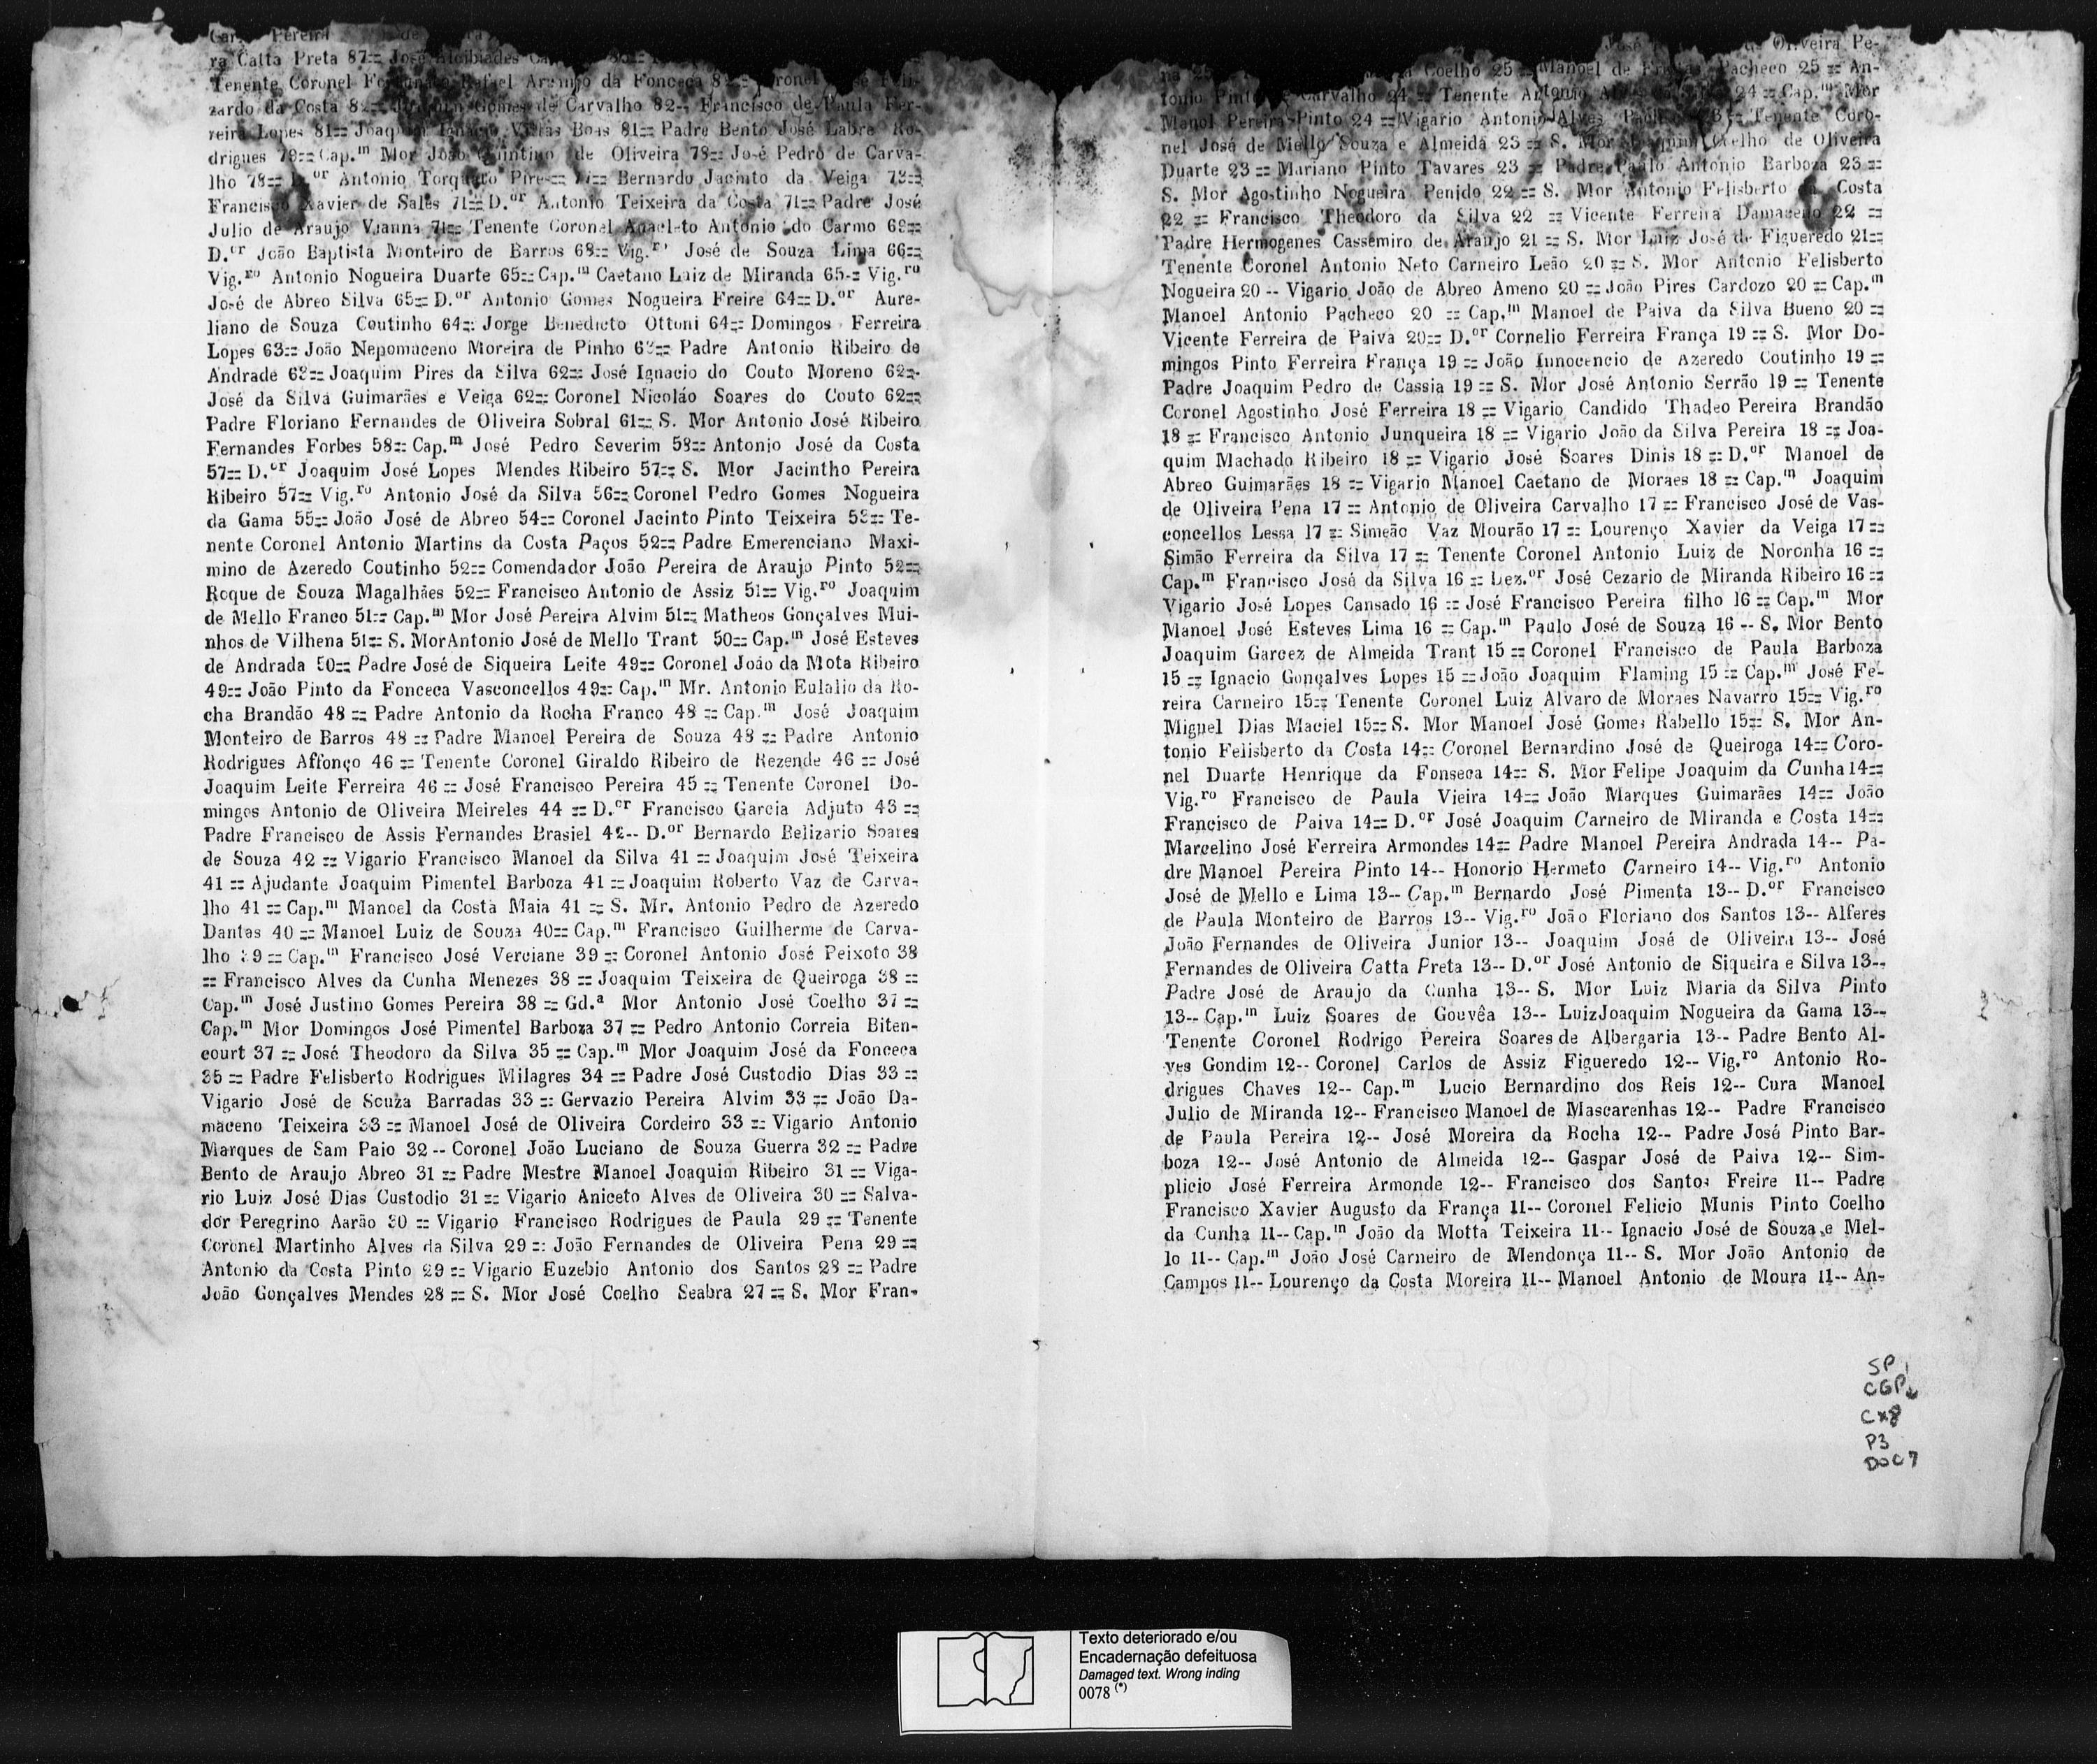 Pereira
ra Catta Preta 87== José Alcibiades
Tenente Coronel Fortunato Rafael Araujo da Fonceca 82==
zardo da Costa 82== Gomes de Carvalho 82-- Francisco de Paula Fer-
reira Lopes 81== Joaquim Ignacio Villas Boas 81== Padre Bento José Labre Ro-
drigues 79== Cap.m Mor João Quintino de Oliveira 78== José Pedro de Carva-
lho 78== D.or Antonio Torquato Pires== Bernardo Jacinto da Veiga
Francisco Xavier de Sales 71== D.or Antonio Teixeira da Costa 71== Padre José
Julio de Araujo Vianna 71== Tenente Coronel Anacleto Antonio do Carmo 69==
D.or João Baptista Monteiro de Barros 68== Vig.r José de Souza Lima 66==
Vig.ro Antonio Nogueira Duarte 65== Cap.m Caetano Luiz de Miranda 65-= Vig.ro
José de Abreo Silva 65== D.or Antonio Gomes Nogueira Freire 64== D.or Aure-
liano de Souza Coutinho 64== Jorge Benedicto Ottoni 64== Domingos Ferreira
Lopes 63== João Nepomuceno Moreira de Pinho 63== Padre Antonio Ribeiro de
Andrade 63== Joaquim Pires da Silva 62== José Ignacio do Couto Moreno 62==
José da Silva Guimarães e Veiga 62== Coronel Nicoláo Soares do Couto 62==
Padre Floriano Fernandes de Oliveira Sobral 61== S. Mor Antonio José Ribeiro
Fernandes Forbes 58== Cap.m José Pedro Severim 58== Antonio José da Costa
57== D.or Joaquim José Lopes Mendes Ribeiro 57== S. Mor Jacintho Pereira
Ribeiro 57== Vig.ro Antonio José da Silva 56== Coronel Pedro Gomes Nogueira
da Gama 55== João José de Abreo 54== Coronel Jacinto Pinto Teixeira 53== Te-
nente Coronel Antonio Martins da Costa Paços 52== Padre Emerenciano Maxi-
mino de Azeredo Coutinho 52== Comendador João Pereira de Araujo Pinto 52==
Roque de Souza Magalhães 52== Francisco Antonio de Assiz 51== Vig.ro Joaquim
de Mello Franco 51== Cap.m Mor José Pereira Alvim 51== Matheos Gonçalves Mui-
nhos de Vilhena 51== S. MorAntonio José de Mello Trant 50== Cap.m José Esteves
de Andrada 50== Padre José de Siqueira Leite 49== Coronel João da Mota Ribeiro
49== João Pinto da Fonceca Vasconcellos 49== Cap.m Mr. Antonio Eulalio da Ro-
cha Brandão 48 == Padre Antonio da Rocha Franco 48 == Cap.m José Joaquim
Monteiro de Barros 48 == Padre Manoel Pereira de Souza 48 == Padre Antonio
Rodrigues Affonço 46 == Tenente Coronel Giraldo Ribeiro de Rezende 46 == José
Joaquim Leite Ferreira 46 == José Francisco Pereira 45 == Tenente Coronel Do-
mingos Antonio de Oliveira Meireles 44 == D.or Francisco Garcia Adjuto 43 ==
Padre Francisco de Assis Fernandes Brasiel 42-- D.or Bernardo Belizario Soares
de Souza 42 == Vigario Francisco Manoel da Silva 41 == Joaquim José Teixeira
41 == Ajudante Joaquim Pimentel Barboza 41 == Joaquim Roberto Vaz de Carva-
lho 41 == Cap.m Manoel da Costa Maia 41 == S. Mr. Antonio Pedro de Azeredo
Dantas 40 == Manoel Luiz de Souza 40== Cap.m Francisco Guilherme de Carva-
lho 39 == Cap.m Francisco José Verciane 39 == Coronel Antonio José Peixoto 38
== Francisco Alves da Cunha Menezes 38 == Joaquim Teixeira de Queiroga 38 ==
Cap.m José Justino Gomes Pereira 38 == Gd.a Mor Antonio José Coelho 37 ==
Cap.m Mor Domingos José Pimentel Barboza 37 == Pedro Antonio Correia Biten-
court 37 == José Theodoro da Silva 35 == Cap.m Mor Joaquim José da Fonceca
35 == Padre Felisberto Rodrigues Milagres 34 == Padre José Custodio Dias 33 ==
Vigario José de Souza Barradas 33 == Gervazio Pereira Alvim 33 == João Da-
maceno Teixeira 33 == Manoel José de Oliveira Cordeiro 33 == Vigario Antonio
Marques de Sam Paio 32 -- Coronel João Luciano de Souza Guerra 32 == Padre
Bento de Araujo Abreo 31 == Padre Mestre Manoel Joaquim Ribeiro 31 == Viga-
rio Luiz José Dias Custodio 31 == Vigario Aniceto Alves de Oliveira 30 == Salva-
dor Peregrino Aarão 30 == Vigario Francisco Rodrigues de Paula 29 == Tenente
Coronel Martinho Alves da Silva 29 == João Fernandes de Oliveira Pena 29 ==
Antonio da Costa Pinto 29 == Vigario Euzebio Antonio dos Santos 28 == Padre
João Gonçalves Mendes 28 == S. Mor José Coelho Seabra 27 == S. Mor Fran-
José Oliveira Pe-
na 25 Coelho 25 == Manoel de Freitas Pacheco 25 == An-
tonio Pinto de Carvalho 24 == Tenente Antonio 24 == Cap.m Mor
Manol Pereira Pinto 24 == Vigario Antonio Alves Tenente Coro-
nel José de Mello Souza e Almeida 23 == S. Mor Joaquim Coelho de Oliveira
Duarte 23 == Mariano Pinto Tavares 23 == Padre Paulo Antonio Barboza 23 ==
S. Mor Agostinho Nogueira Penido 22 == S. Mor Antonio Felisberto da Costa
22 == Francisco Theodoro da Silva 22 == Vicente Ferreira Damaceno 22 ==
Padre Hermogenes Cassemiro de Araujo 21 == S. Mor Luiz José de Figueredo 21==
Tenente Coronel Antonio Neto Carneiro Leão 20 == S. Mor Antonio Felisberto
Nogueira 20 -- Vigario João de Abreo Ameno 20 == João Pires Cardozo 20 == Cap.m
Manoel Antonio Pacheco 20 == Cap.m Manoel de Paiva da Silva Bueno 20 ==
Vicente Ferreira de Paiva 20== D.or Cornelio Ferreira França 19 == S. Mor Do-
mingos Pinto Ferreira França 19 == João Innocencio de Azeredo Coutinho 19 ==
Padre Joaquim Pedro de Cassia 19 == S. Mor José Antonio Serrão 19 == Tenente
Coronel Agostinho José Ferreira 18 == Vigario Candido Thadeo Pereira Brandão
18 == Francisco Antonio Junqueira 18 == Vigario João da Silva Pereira 18 == Joa-
quim Machado Ribeiro 18 == Vigario José Soares Dinis 18 == D.or Manoel de
Abreo Guimarães 18 == Vigario Manoel Caetano de Moraes 18 == Cap.m Joaquim
de Oliveira Pena 17 == Antonio de Oliveira Carvalho 17 == Francisco José de Vas-
concellos Lessa 17 == Simeão Vaz Mourão 17 == Lourenço Xavier da Veiga 17 ==
Simão Ferreira da Silva 17 == Tenente Coronel Antonio Luiz de Noronha 16 ==
Cap.m Francisco José da Silva 16 == Dez.or José Cezario de Miranda Ribeiro 16 ==
Vigario José Lopes Cansado 16 == José Francisco Pereira filho 16 == Cap.m Mor
Manoel José Esteves Lima 16 == Cap.m Paulo José de Souza 16 -- S. Mor Bento
Joaquim Garcez de Almeida Trant 15 == Coronel Francisco de Paula Barboza
15 == Ignacio Gonçalves Lopes 15 == João Joaquim Flaming 15 == Cap.m José Fe-
reira Carneiro 15== Tenente Coronel Luiz Alvaro de Moraes Navarro 15== Vig.ro
Miguel Dias Maciel 15== S. Mor Manoel José Gomes Rabello 15== S. Mor An-
tonio Felisberto da Costa 14== Coronel Bernardino José de Queiroga 14== Coro-
nel Duarte Henrique da Fonseca 14== S. Mor Felipe Joaquim da Cunha 14==
Vig.ro Francisco de Paula Vieira 14== João Marques Guimarães 14== João
Francisco de Paiva 14== D.or José Joaquim Carneiro de Miranda e Costa 14==
Marcelino José Ferreira Armondes 14== Padre Manoel Pereira Andrada 14-- Pa-
dre Manoel Pereira Pinto 14-- Honorio Hermeto Carneiro 14-- Vig.ro Antonio
José de Mello e Lima 13-- Cap.m Bernardo José Pimenta 13-- D.or Francisco
de Paula Monteiro de Barros 13-- Vig.ro João Floriano dos Santos 13-- Alferes
João Fernandes de Oliveira Junior 13-- Joaquim José de Oliveira 13-- José
Fernandes de Oliveira Catta Preta 13-- D.or José Antonio de Siqueira e Silva 13--
Padre José de Araujo da Cunha 13-- S. Mor Luiz Maria da Silva Pinto
13-- Cap.m Luiz Soares de Gouvêa 13-- LuizJoaquim Nogueira da Gama 13--
Tenente Coronel Rodrigo Pereira Soares de Albergaria 13-- Padre Bento Al-
ves Gondim 12-- Coronel Carlos de Assiz Figueredo 12-- Vig.ro Antonio Ro-
drigues Chaves 12-- Cap.m Lucio Bernardino dos Reis 12-- Cura Manoel
Julio de Miranda 12-- Francisco Manoel de Mascarenhas 12-- Padre Francisco
de Paula Pereira 12-- José Moreira da Rocha 12-- Padre José Pinto Bar-
boza 12-- José Antonio de Almeida 12-- Gaspar José de Paiva 12-- Sim-
plicio José Ferreira Armonde 12-- Francisco dos Santos Freire 11-- Padre
Francisco Xavier Augusto da França 11-- Coronel Felicio Munis Pinto Coelho
da Cunha 11-- Cap.m João da Motta Teixeira 11-- Ignacio José de Souza e Mel-
lo 11-- Cap.m João José Carneiro de Mendonça 11-- S. Mor João Antonio de
Campos 11-- Lourenço da Costa Moreira 11-- Manoel Antonio de Moura 11-- An-
SP
CGP1
Cx8
P3
DOC7
Texto deteriorado e/ou
Encadernação defeituosa
Damaged text. Wrong inding
0078 (*)